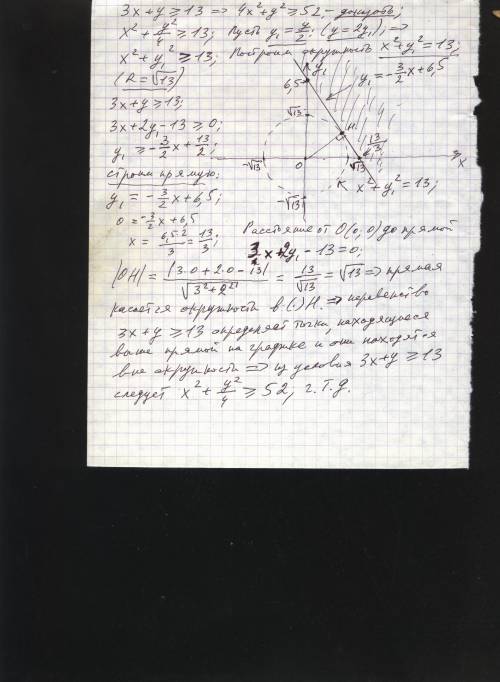 3x+y≥13 ⇒ 4x²+y²≥52 – доказать;
x²+y²/4≥13; Пусть y₁=y/2; (y=2y₁); ⇒
x²+y₁²≥13; Построим окружность x²+y₁²=13;
(R=√13)
3x+y≥13;
3x+2y₁-13≥0;
y₁≥-3/2x+13/2;
строим прямую:
y₁=-3/2x+6,5;
0=-3/2x+6,5
x=6,5·2/3=13/3;
y₁
6,5
y₁=-3/2x+6,5
√13
H
13/3
-√13
0
√13
x
-√13
K
x²+y₁²=13;
Расстояние от O(0;0) до прямой
3x+2y₁-13=0;
|OH|=|3·0+2·0-13|/√3²+2²=13/√13=√13 ⇒ прямая
касается окружности в (·) H. ⇒ неравенство
3x+y≥13 определяет точки, находящиеся
выше прямой на графике и они находятся
вне окружности ⇒ из условия 3x+y≥13
следует x²+y²/4≥52, ч.т.д.